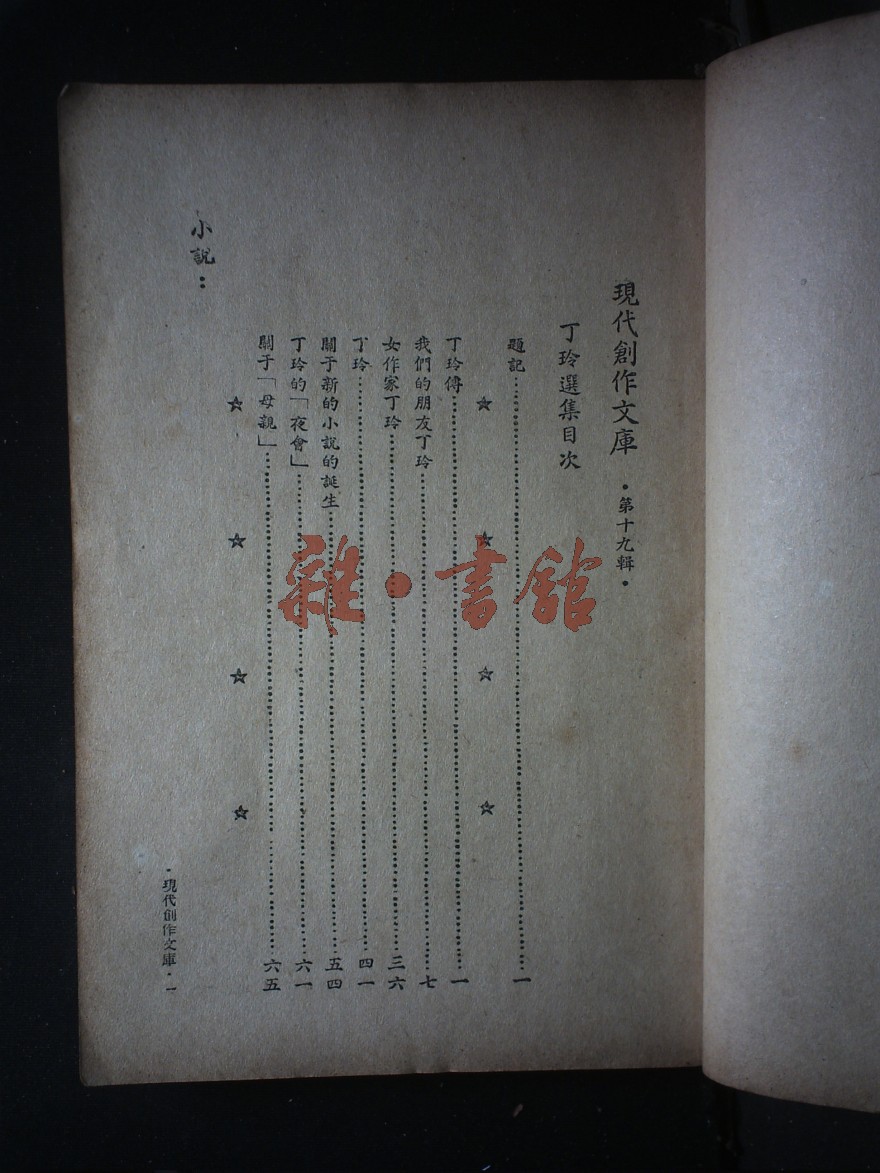 現代創作文庫 •第十九輯•
丁玲選集目次
題記……一
☆ ☆ ☆ ☆
丁玲傳……一
我們的朋友丁玲……七
女作家丁玲……三六
丁玲……四一
關于新的小說的誕生……五四
丁玲的「夜會」……六一
關于「母親」……六五
☆ ☆ ☆ ☆
小說：
•現代創作文庫•一
雜•書館